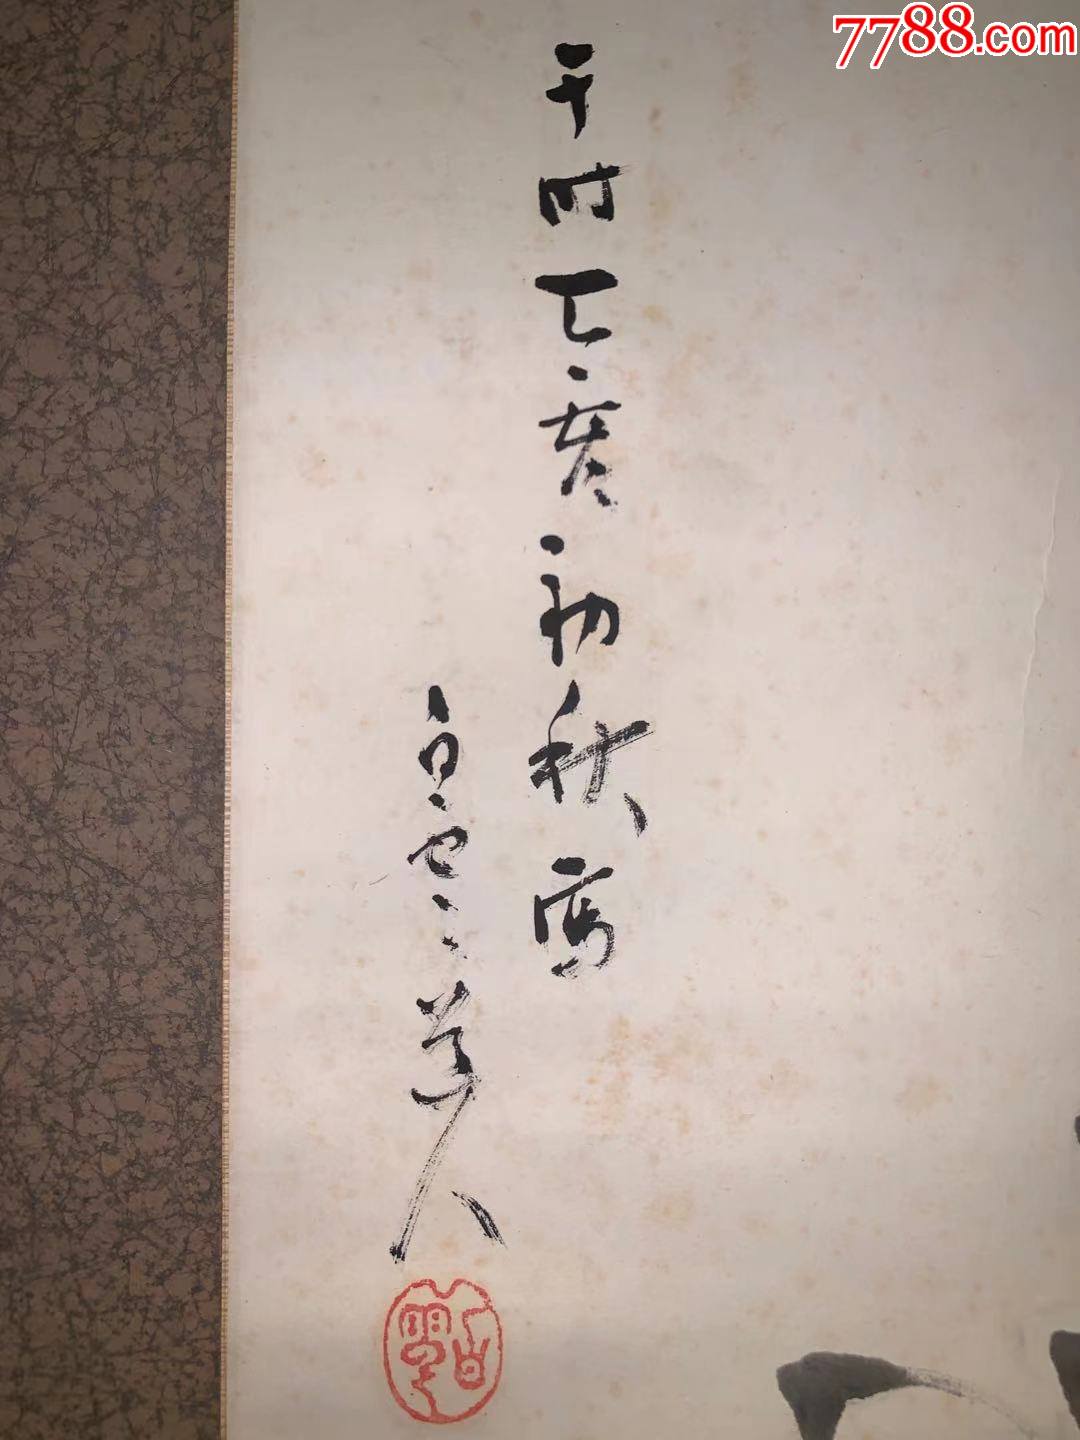 7788.com
于时乙亥初秋寫
白雲道人